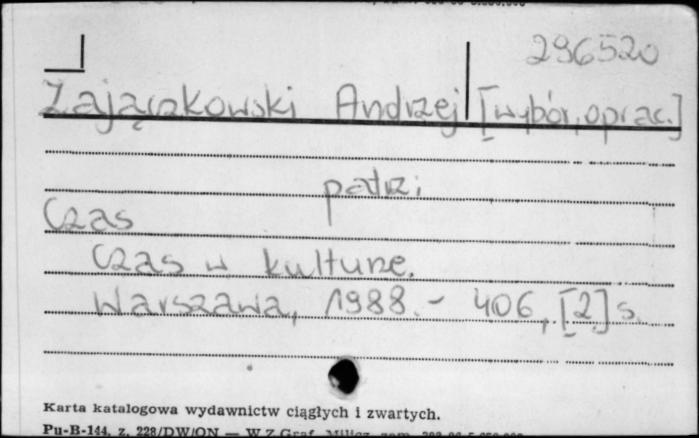 296520
Zajączkowski Andrzej [wybór, oprac.]
patrz:
Czas
Czas w kulturze.
Warszawa, 1988. - 406, [2] s.
Karta katalogowa wydawnictw ciągłych i zwartych.
Pu-B-144, z. 228/DW/ON — W Z Graf. Milicz, zam.